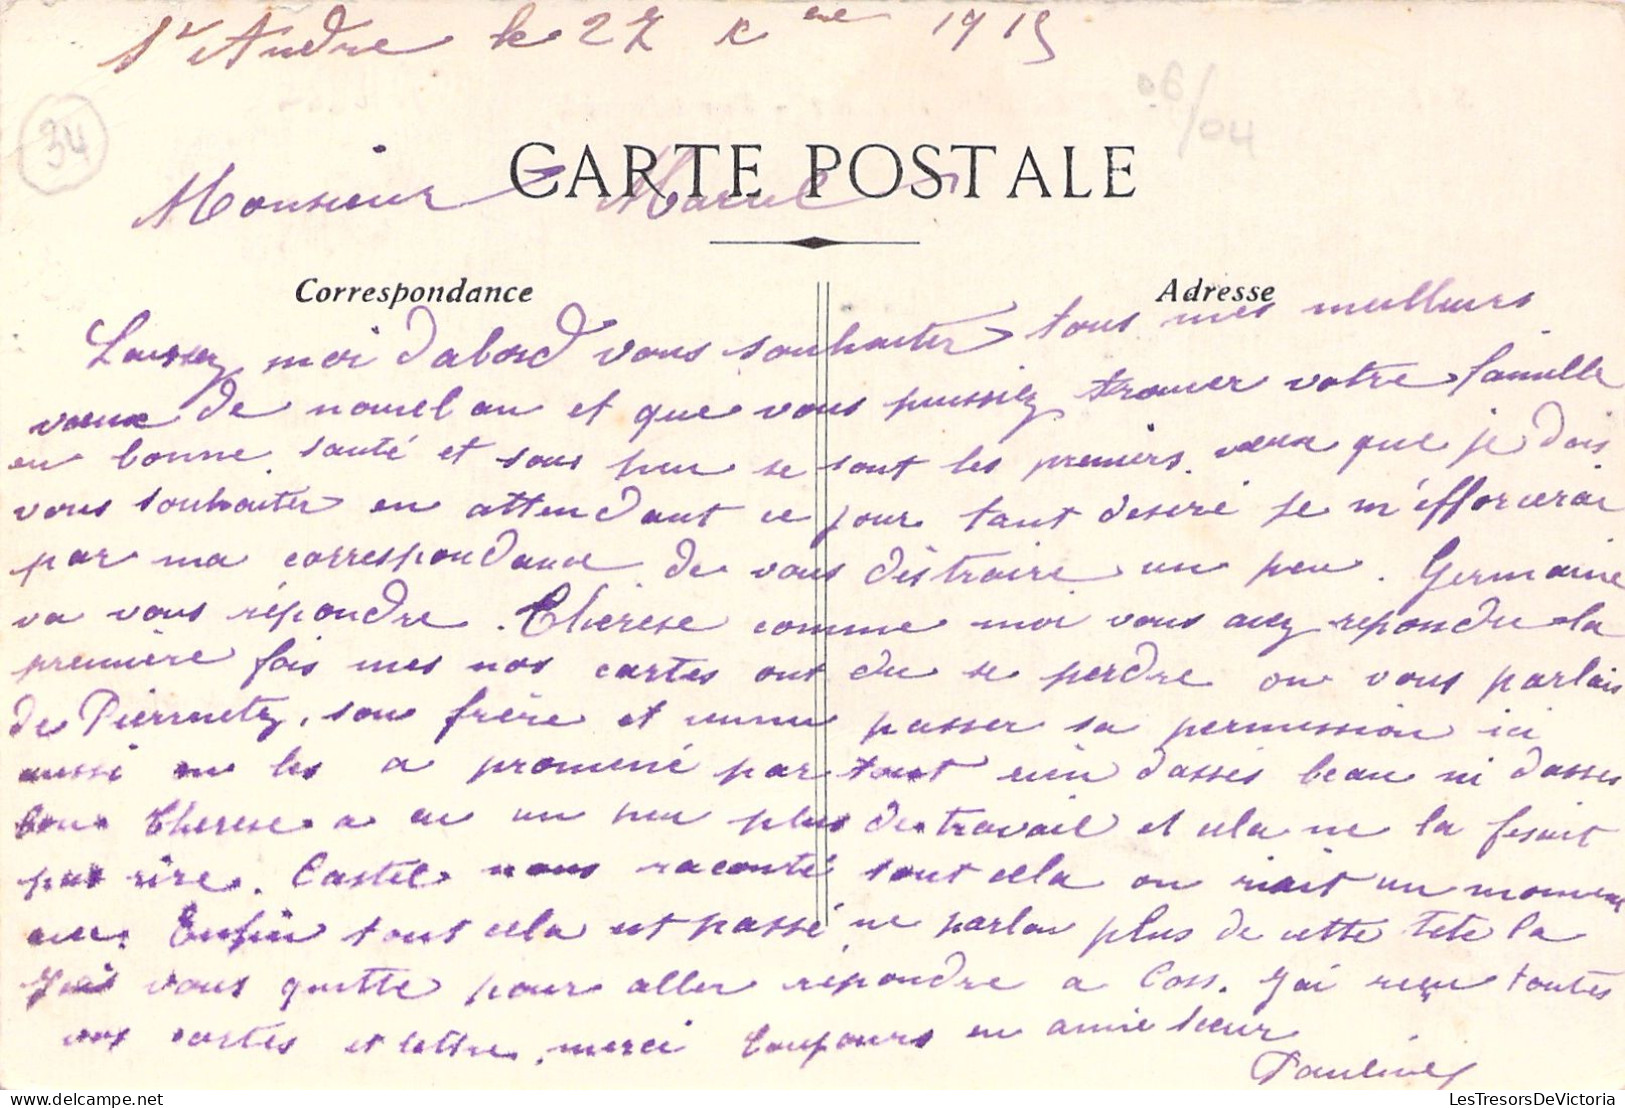 St André le 27 Xbre 1915
34
06/04
CARTE POSTALE
Monsieur Marcel
Correspondance
Adresse
Laissez moi d'abord vous souhaiter tous mes meilleurs
vœux de nouvel an et que vous puissiez trouver votre famille
en bonne santé et sous peu se sont les premiers vœux que je dois
vous souhaiter en attendant ce jour tant desiré je m'efforcerai
par ma correspondance de vous distraire un peu. Germaine
va vous répondre. Thérèse comme moi vous avez repondu la
première fois mes nos cartes ont du se perdre on vous parlais
de Pierrnetz, son frère et venu passer sa permission ici
aussi on les a promené partout rien d'asses beau ni d'asses
bon Therese a eu un peu plus de travail et cela ne la fesait
pas rire. Castel nous raconté tout cela on riait un moment
avec. Enfin tout cela est passé ne parlon plus de cette tete la
Je vous quitte pour aller répondre a Coss. J'ai reçu toutes
vos cartes et lettre, merci toujours en amie sœur
Pauline
LesTresorsDeVictoria